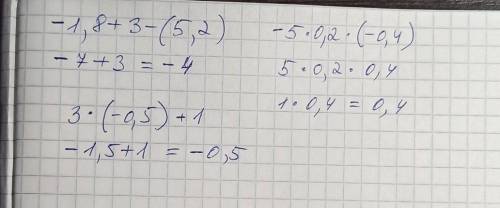 -1,8+3-(5,2)
-7+3 = -4
3·(-0,5)+1
-1,5+1 = -0,5
-5·0,2·(-0,4)
5·0,2·0,4
1·0,4 = 0,4